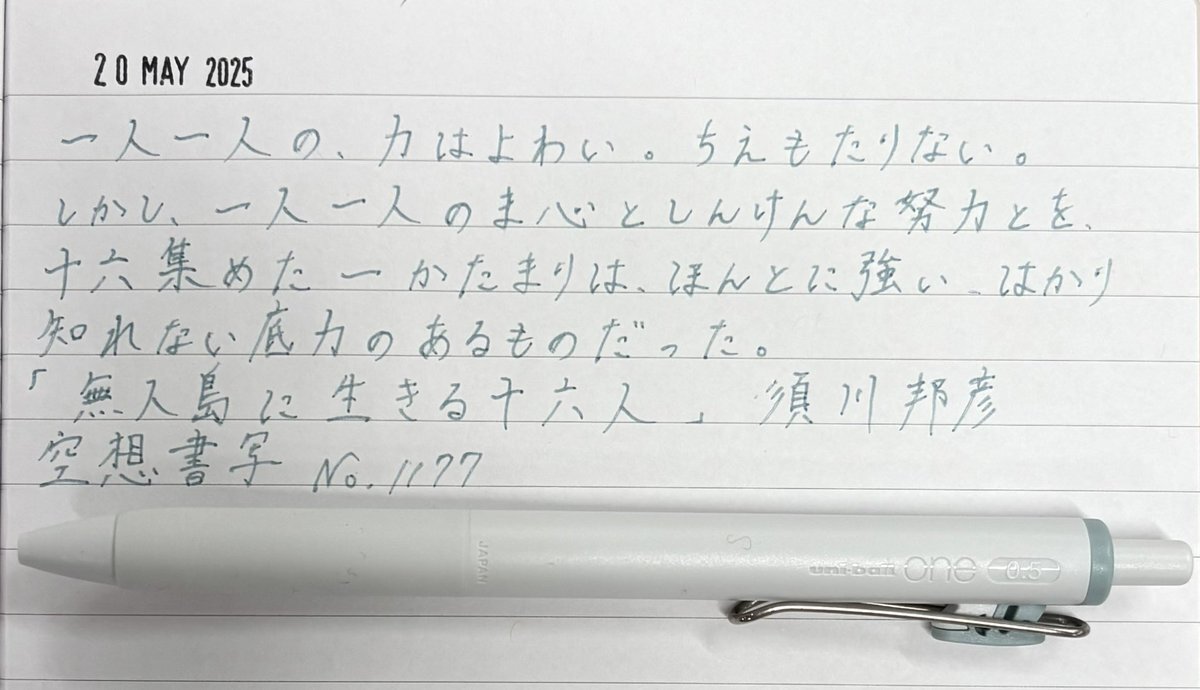 20 MAY 2025
一人一人の、力はよわい。ちえもたりない。
しかし、一人一人のま心としんけんな努力とを、
十六集めた一かたまりは、ほんとに強い、はかり
知れない底力のあるものだった。
「無人島に生きる十六人」 須川邦彦
空想書写 No.1177
JAPAN
uni-ball one 0.5